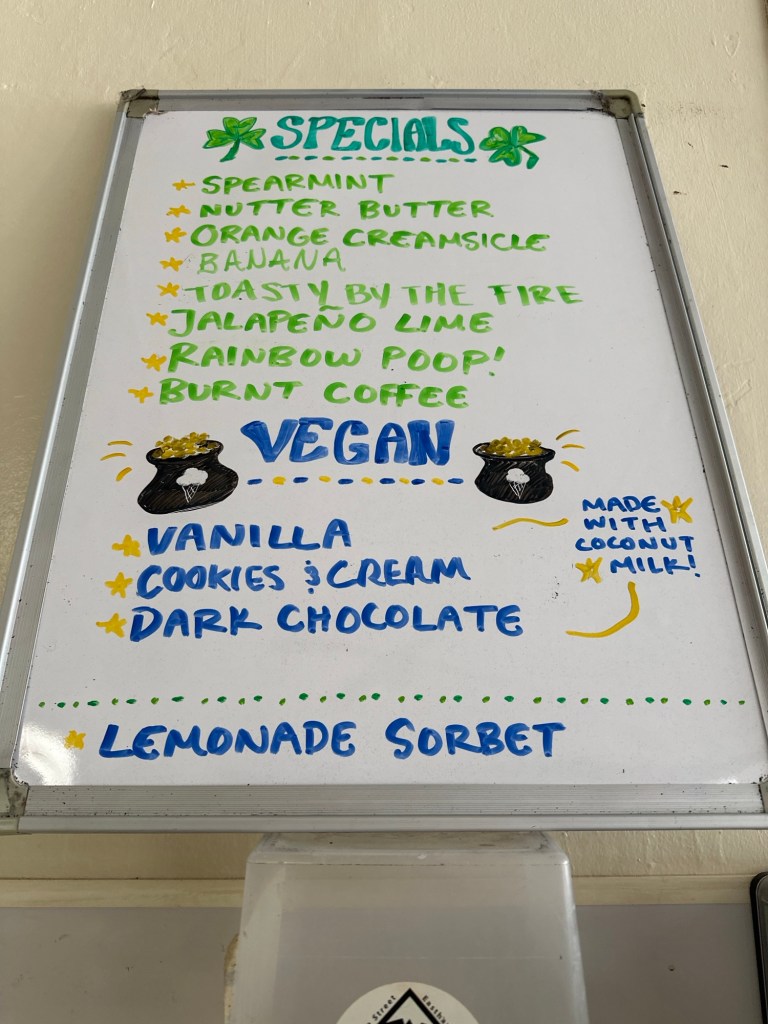 SPECIALS
SPEARMINT
NUTTER BUTTER
ORANGE CREAMSICLE
BANANA
TOASTY BY THE FIRE
JALAPEÑO LIME
RAINBOW POOP!
BURNT COFFEE
VEGAN
VANILLA
COOKIES & CREAM
DARK CHOCOLATE
MADE
WITH
COCONUT
MILK!
LEMONADE SORBET
Street